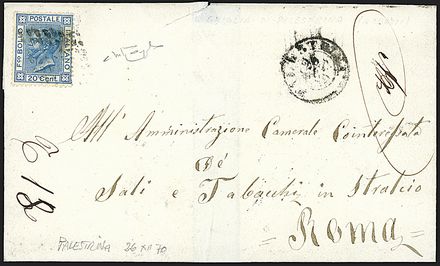 POSTALE
ITALIANO
FCO BOLLO
20 Cent.
All' Amministrazione Camerale Cointeressata
De'
Sali e Tabacchi in Stralcio
= Roma =
218
PALESTRINA 26 XII 70